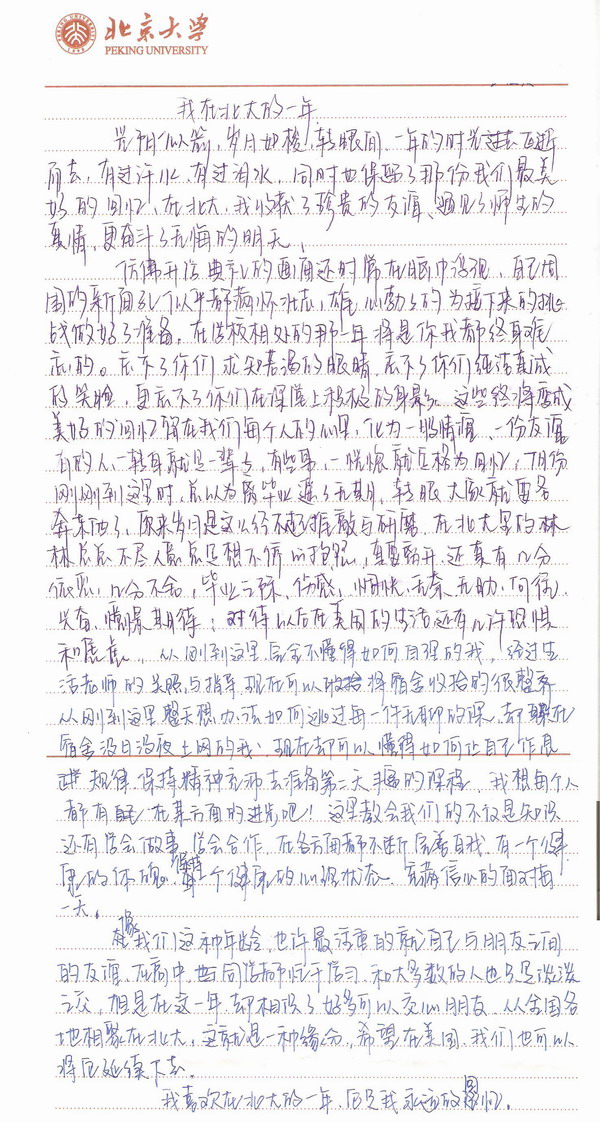 北京大学
PEKING UNIVERSITY
我在北大的一年
光阴似箭，岁月如梭，转眼间，一年的时光过去了匆匆
而去，有过汗水，有过泪水，同时也保留了那份我们最美
好的回忆，在北大，我收获了珍贵的友谊、遇见了师生的
真情，更奋斗了无悔的明天。
仿佛开学典礼的画面还时常在脑中浮现，自己周
围的新面孔似乎都满怀壮志，雄心勃勃的为接下来的挑
战做好了准备，在学校相处的那一年将是你我都终身难
忘的。忘不了你们求知若渴的眼睛，忘不了你们纯洁真诚
的笑脸，更忘不了你们在课堂上积极的身影。这些终将变成
美好的回忆留在我们每个人的心里，化为一股情谊、一份友谊
有的人，一转身就是一辈子，有些事，一恍惚就定格为回忆，7月份
刚刚到这里时，总以为离毕业遥遥无期，转眼大家就要各
奔东西了，原来岁月是这么经不起推敲与研磨，在北大里的林
林总总不尽人意总是想不停的抱怨，真要离开，还真有几分
依恋，几分不舍，毕业之际，伤感，惆怅，无奈，无助，向往，
兴奋，憧憬，期待；对待以后在美国的生活还有几许恐惧
和焦虑。从刚到这里完全不懂得如何自理的我，经过生
活老师的关照与指导，现在可以将宿舍收拾的很整齐
从刚到这里整天想办法如何逃过每一件无聊的课，却躲在
宿舍没日没夜上网的我，现在却可以懂得如何让自己作息
规律，保持精神充沛去准备第二天要的课程，我想每个人
都有自己在某方面的进步吧！这里教会我们的不仅是知识
还有学会做事，学会合作，在各方面都不断完善自我，有一个健
康的体魄，保持一个健康的心理状态，充满信心的面对每
一天。
像我们这种年龄，也许最注重的就自己与朋友之间
的友谊，在高中，同学都忙于学习，和大多数的人也只是淡淡
之交，但是在这一年却相识了好多可以交心朋友，从全国各
地相聚在北大，这就是一种缘分，希望在美国，我们也可以
将它延续下去。
我喜欢在北大的一年，它是我永远的回忆。